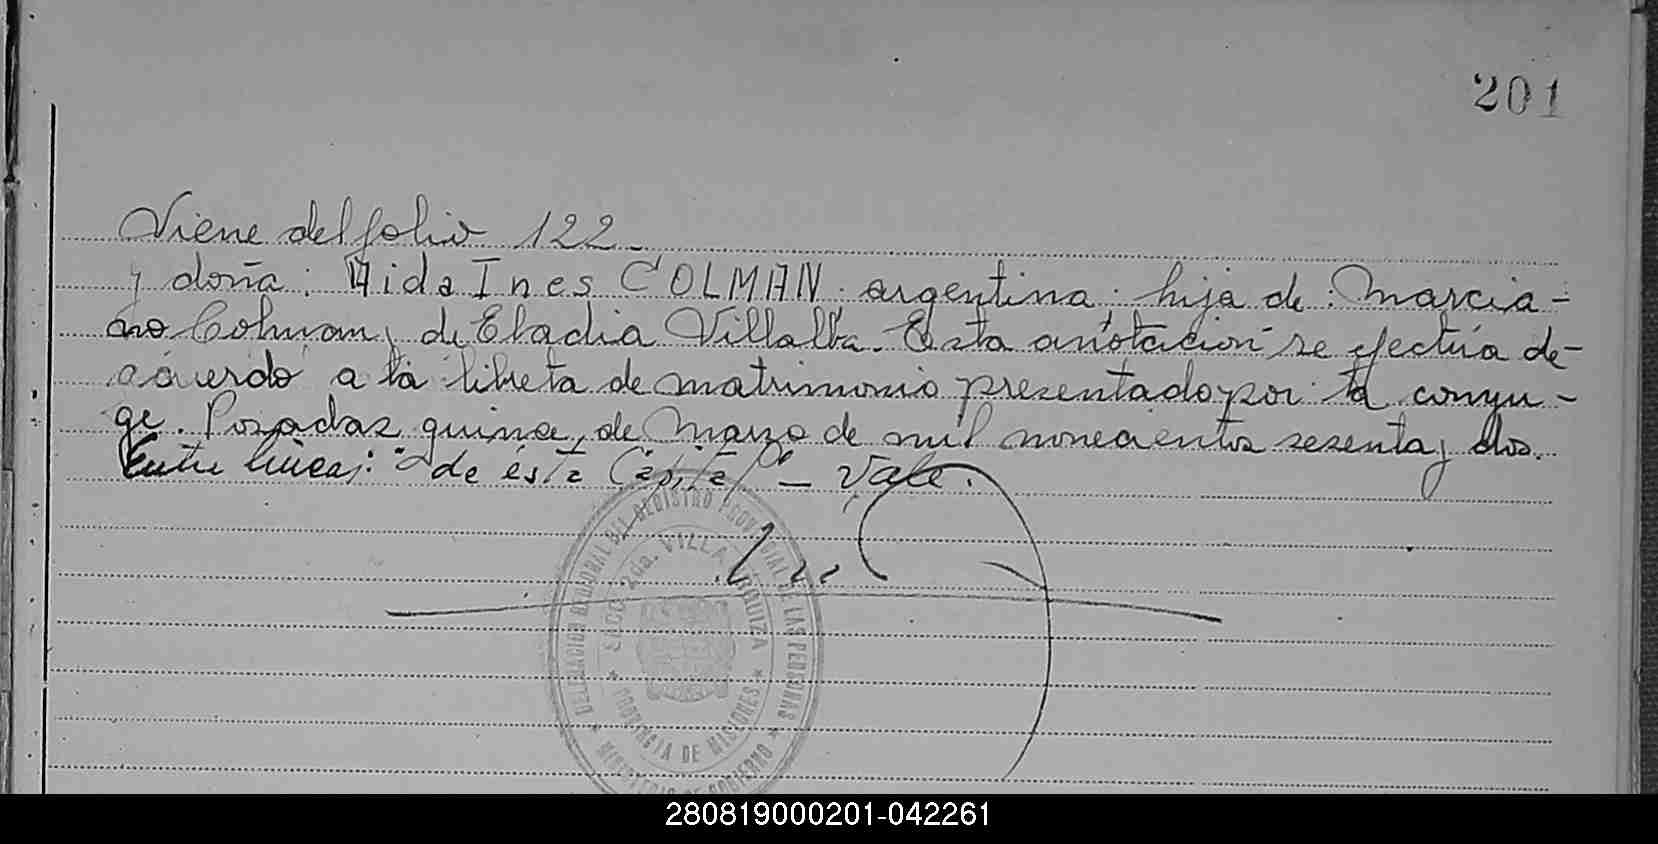 201
Viene del folio 122.-
y doña: Aida Ines COLMAN. argentina. hija de: Marcia-
no Colman y de Eladia Villalba. Esta anotacion se efectúa de-
acuerdo a la libreta de matrimonio presentado por la conyu-
ge. Posadas quince, de Marzo de mil novecientos sesenta y dos.
Entre líneas: "de ésta Capital" - Vale.
DELEGACION REGIONAL DEL REGISTRO PROVINCIAL DE LAS PERSONAS
SECC. 2da. VILLA URQUIZA
PROVINCIA DE MISIONES
MINISTERIO DE GOBIERNO
280819000201-042261